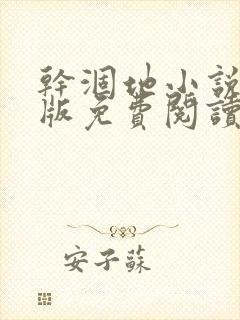 幹涸地小說
版免費閱讀
安子蘇